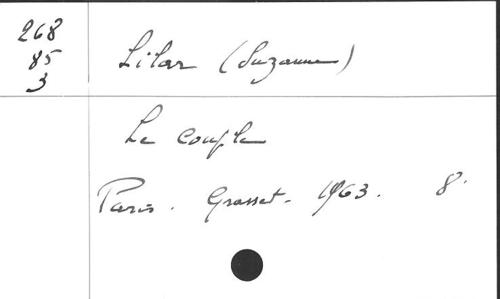 268
85
3
Lilar (Suzanne)
Le couple
Paris. Grasset. 1963. 8°